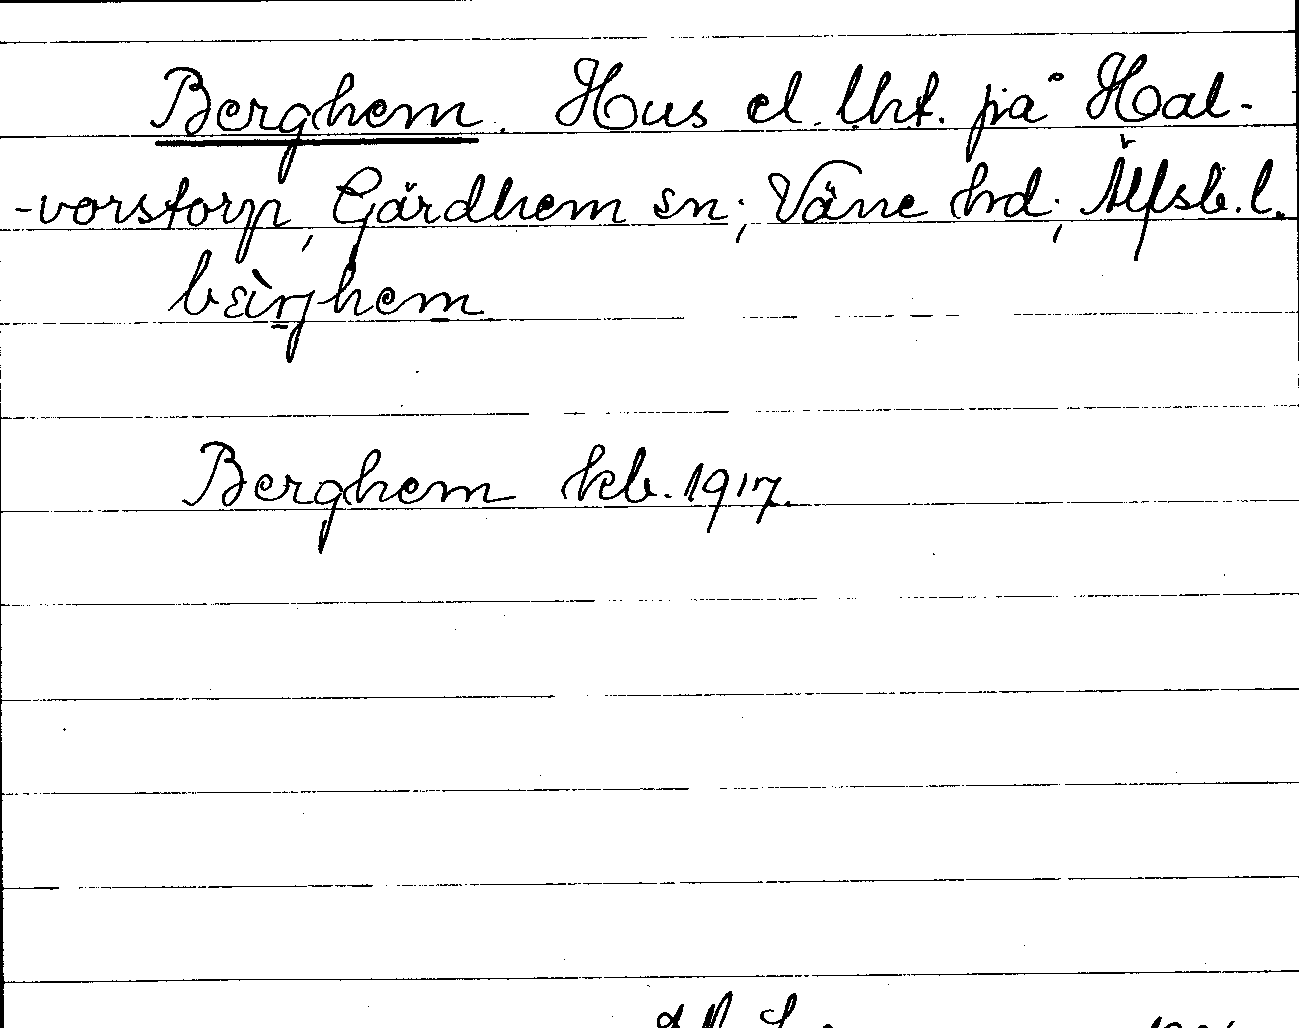 Berghem. Hus el. lht. på Hal-
-vorstorp, Gärdhem sn; Väne hrd; Älfsb. l.
Berghem kb. 1917.